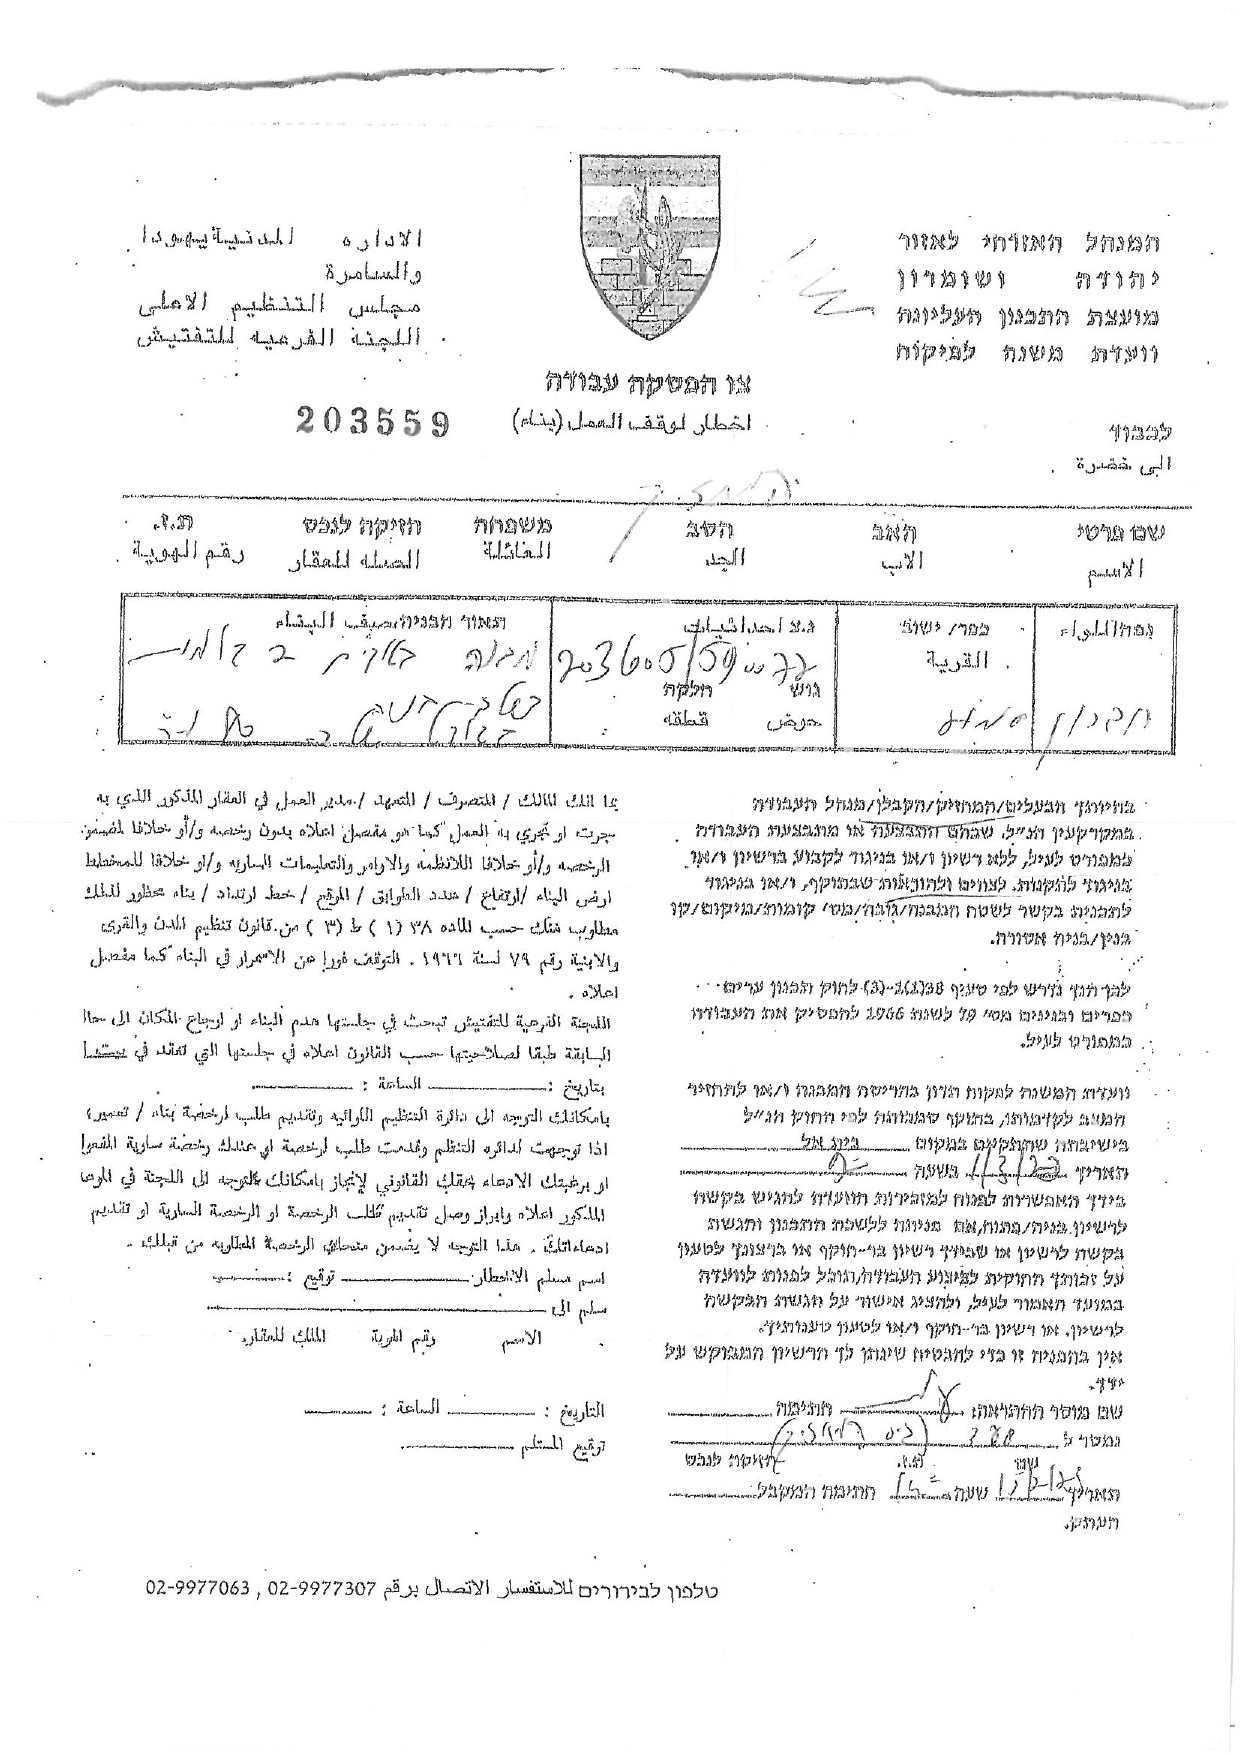 המנהל האזרחי לאזור
יהודה ושומרון
מועצת התכנון העליונה
וועדת משנה לפיקוח
الاداره المدنية يهودا
والسامرة
مجلس التنظيم الاعلى
اللجنة الفرعيه للتفتيش
צו הפסקת עבודה
اخطار لوقف العمل (بناء)
203559
לכבוד
الى حضرة
המחזיק
שם פרטי האב הסב משפחה חזיקה לנכס ת.ז.
الاسم الاب الجد العائلة الصله للعقار رقم الهوية
נפה/اللواء
חברון
כפר/ ישוב
القرية
סמוע
נ.צ احداثيات
203605/590077
גוש חלקה
حوض قطعه
תאור הבניה/صيف البناء
מבנה
בהיותך הבעלים/המחזיק/הקבלן/מנהל העבודה
במקרקעין הנ"ל, שבהם התבצעה או מתבצעת העבודה
כמפורט לעיל, ללא רשיון ו/או בניגוד לקבוע ברשיון ו/או
בניגוד לתקנות, לצווים ולהוראות שבתוקף, ו/או בניגוד
לתכנית בקשר לשטח המבנה/גובה/מס' קומות/מיקום/קו
בנין/בניה אסורה.
לכך הנך נדרש לפי סעיף 38(1)-(3) לחוק תכנון ערים
כפרים ובנינים מס' 79 לשנת 1966 להפסיק את העבודה
כמפורט לעיל.
וועדת המשנה לפקוח תדון בהריסת המבנה ו/או להחזיר
המצב לקדמותו, בתוקף סמכותה לפי החוק הנ"ל
בישיבתה שתתקיים במקום בית אל
תאריך בשעה
בידך האפשרות לפנות למזכירות הוועדה להגיש בקשה
לרשיון בניה/פתוח, אם פנית ללשכת התכנון והגשת
בקשה לרשיון או שבידך רשיון בר-תוקף או ברצונך לטעון
על זכותך החוקית לביצוע העבודה, תוכל לפנות לוועדה
במועד האמור לעיל, ולהציג אישור על הגשת הבקשה
לרשיון, או רשיון בר-תוקף ו/או לטעון טענותיך.
אין בהפניה זו כדי להבטיח שינתן לך הרשיון המבוקש על
ידך.
שם מוסר ההתראה: חתימה
נמסר ל
שם ת.ז. חזיקה לנכס
תאריך שעה חתימת המקבל
העתק.
بما انك المالك / المتصرف / المتعهد / مدير العمل في العقار المذكور الذي به
جرت او تجري به العمل كما هو مفصل اعلاه بدون رخصه و/أو خلافا لمضمون
الرخصه و/أو خلافا للانظمه والاوامر والتعليمات الساريه و/او خلافا للمخطط
ارض البناء /ارتفاع / عدد الطوابق / الموقع / خط ارتداد / بناء محظور لذلك
مطلوب منك حسب الماده ٣٨ (١) ط (٣) من قانون تنظيم المدن والقرى
والابنية رقم ٧٩ لسنة ١٩٦٦ . التوقف فورا عن الاستمرار في البناء كما مفصل
اعلاه .
اللجنة الفرعية للتفتيش تبحث في جلستها هدم البناء او ارجاع المكان الى حالا
السابقة طبقا لصلاحيتها حسب القانون اعلاه في جلستها التي تعقد في
بتاريخ : الساعة :
بامكانك التوجه الى دائرة التنظيم اللوائيه وتقديم طلب لرخصة بناء / تعمير،
اذا توجهت لدائره التنظم وقدمت طلب لرخصة او عندك رخصة سارية المفعوا
او برغبتك الادعاء بحقك القانوني لإنجاز بامكانك التوجه الى اللجنة في الموعا
المذكور اعلاه وابراز وصل تقديم طلب الرخصة او الرخصة السارية او تقديم
ادعاءاتك . هذا التوجه لا يضمن منحك الرخصة المطلوبه من قبلك .
اسم مسلم الاخطار توقيع :
سلم الى
الاسم رقم الهوية المالك للعقار.
التاريخ : الساعة :
توقيع المستلم
טלפון לבירורים للاستفسار الاتصال برقم 02-9977307 , 02-9977063